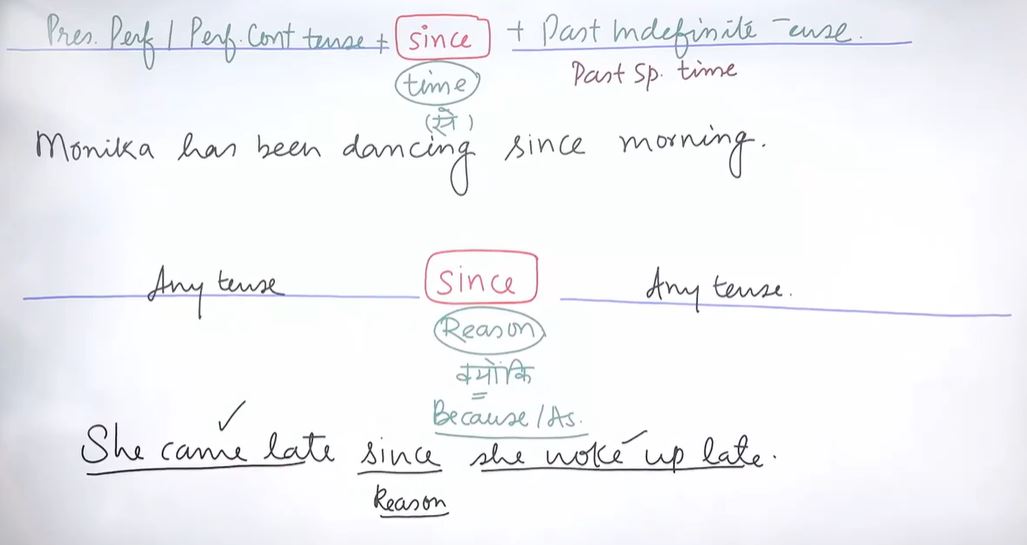 Pres. Perf / Perf. Cont tense + since + Past Indefinite Tense.
time
Past Sp. time
(से)
Monika has been dancing since morning.
Any tense since Any tense.
Reason
क्योंकि
Because / As.
She came late since she woke up late.
Reason